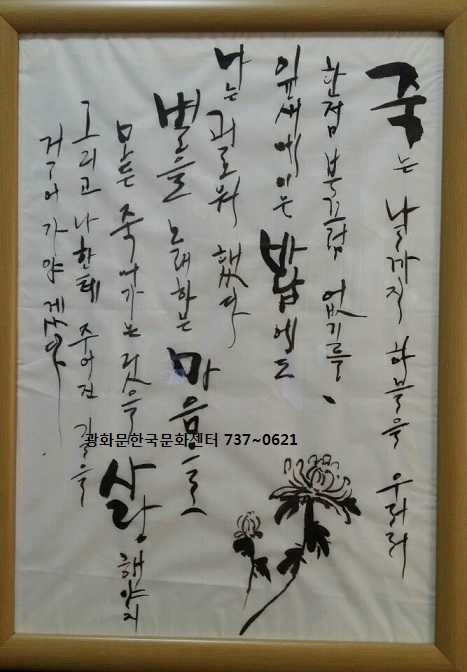 죽는 날까지 하늘을 우러러
한점 부끄럼 없기를、
잎새에 이는 바람에도
나는 괴로워 했다
별을 노래하는 마음으로
모든 죽어가는 것을 사랑해야지
그리고 나한테 주어진 길을
걸어가야겠다.
광화문한국문화센터 737~0621